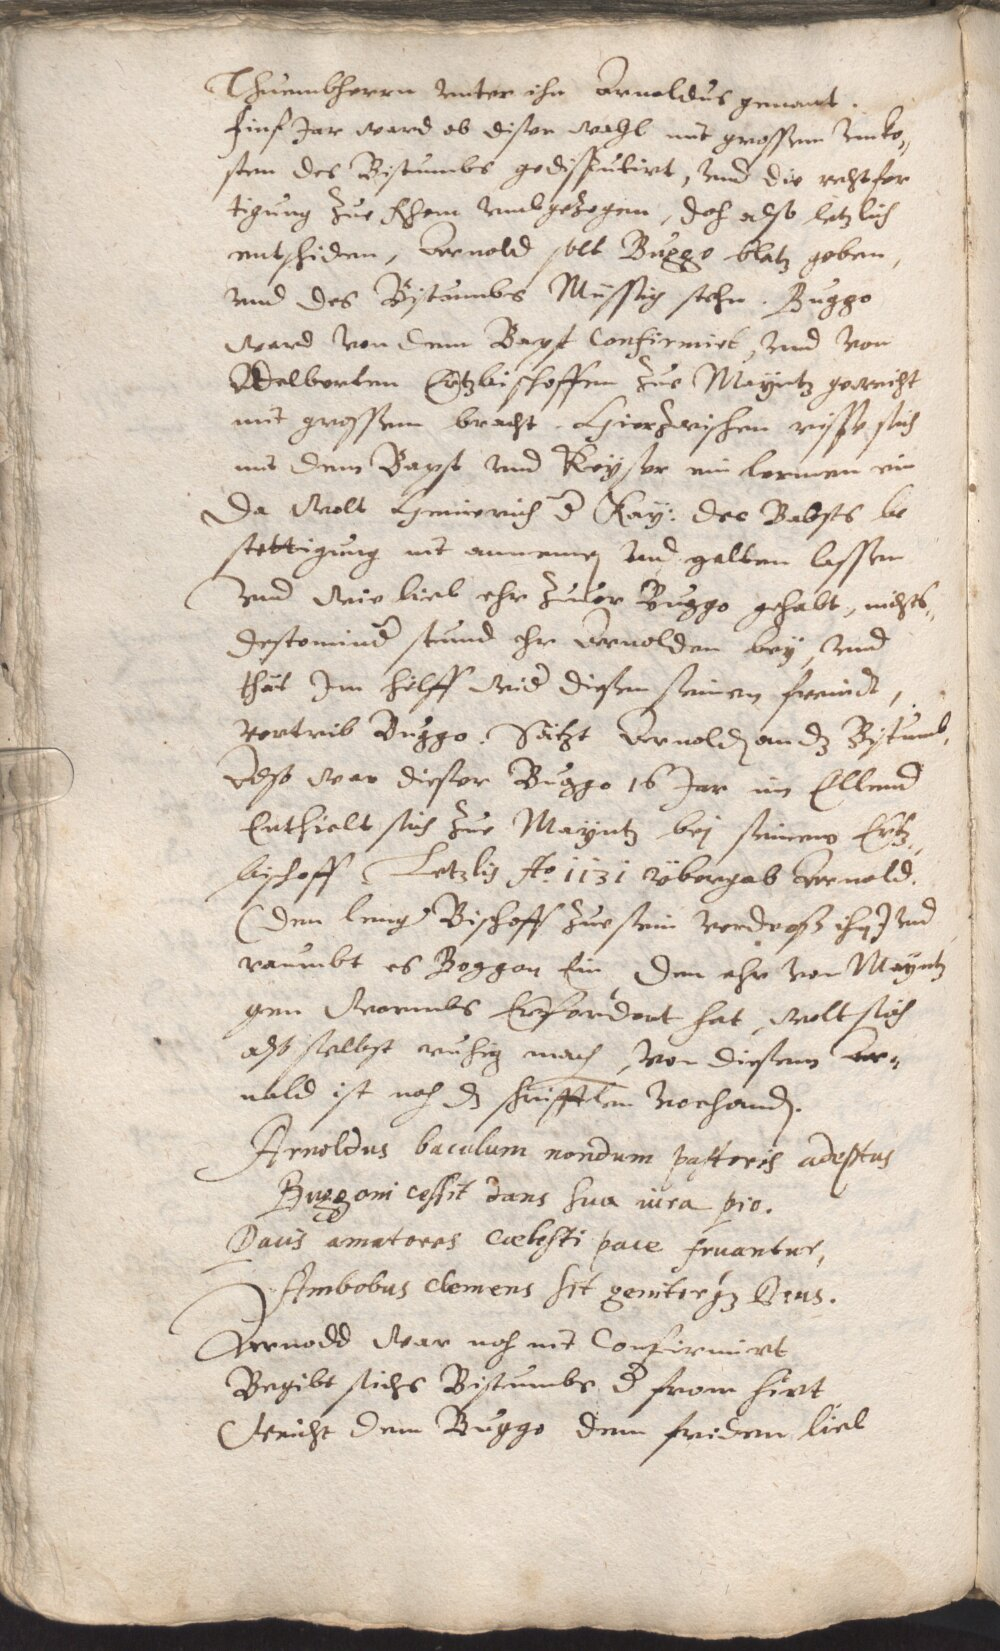 Thuembherrn unter ihn Arnoldus genant.
Finf Jar ward ob diser wahl mit grossem unko¬
sten des Bistumbs gedisputirt, und die rechtfer
tigung zue Rhom umbgezogen, doch also letzlich
entschiden, Arnold solt Buggo blatz geben,
und des Bistumbs Müssig stehn. Buggo
ward von dem Bapst Confirmirt, und von
Adelberten Ertzbischoffen zue Mayntz geweicht
mit grossem bracht. Hierzwischen risse sich
mit dem Bapst und Keyser ein lermen ein
Da wolt Heinrich d Kay: des Babsts be
stettigung nit annemen und gelten lassen
und wie lieb ehr zuvor Buggo gehabt, nichts¬
destomind stund ehr Arnolden bey, und
thät Im hilff wid diesen seinen freindt,
vertrib Buggo. Setzt Arnolden an dz Bistumb,
Also war dieser Buggo 16 Jar im Ellend
Enthielt sich zue Mayntz bei seinem Ertz¬
bischoff. Letzlich Ao 1131 übergab Arnold.
(den leng Bischoff zue sein verdross ihn) und
raumbt es Boggon Ein, den ehr von Mayntz
gen Wormbs Erfordert hat, wolt sich
also selbst ruhig machen, von diesem Ar¬
nold ist noch dz schrifftlen vorhanden.
Arnoldus baculum nondum pastoris adeptus
Buggoni cessit dans sua iura pio.
Pacis amatores caelesti pace fruantur,
Ambobus clemens sit genitorqz Deus.
Arnodd war noch nit Confirmirt
Begibt sichs Bistumbs d from hirt
Weicht dem Buggo dem friden lieb